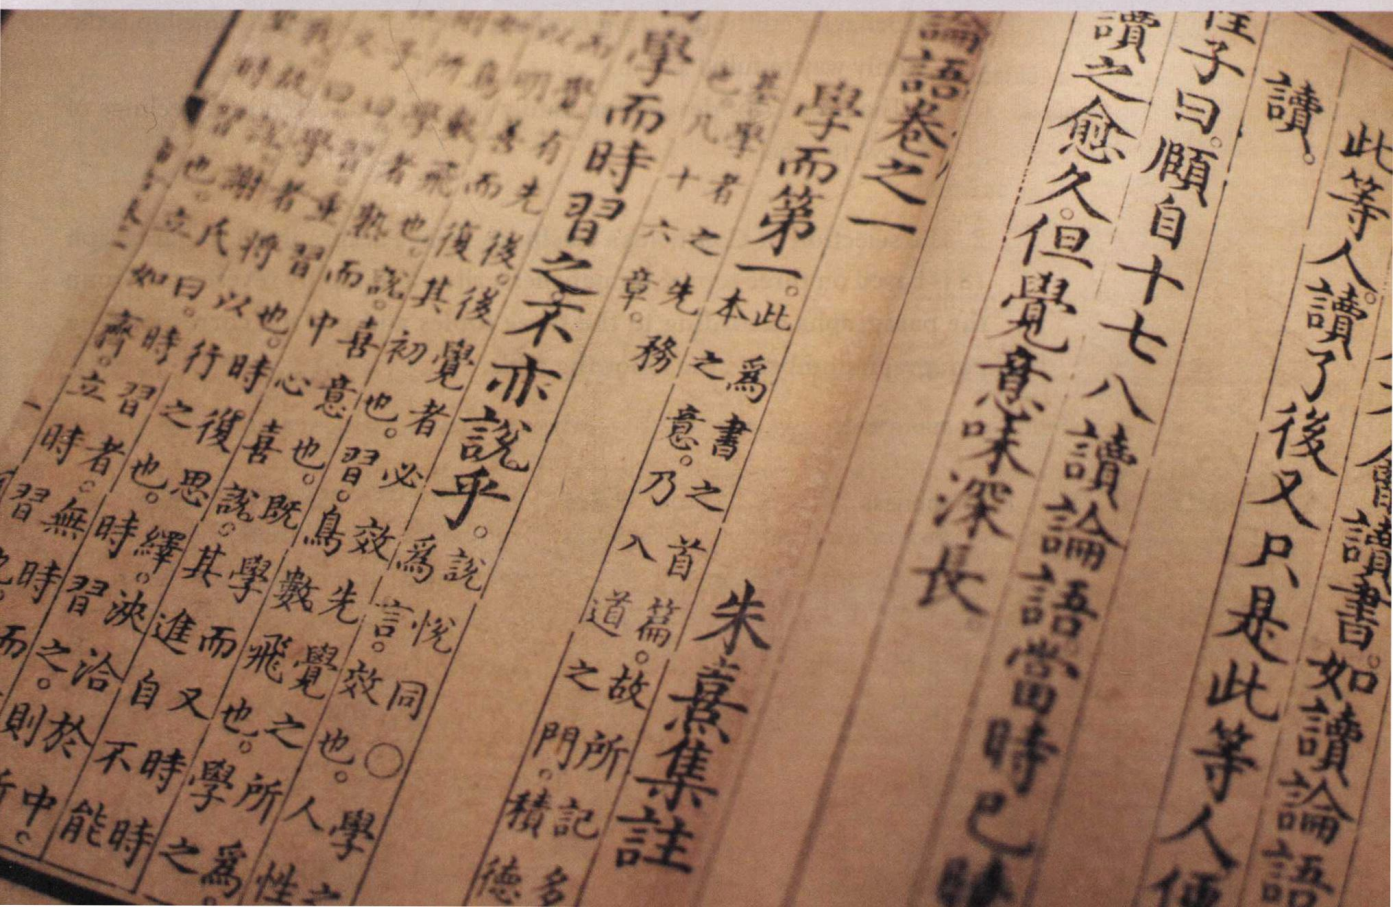 會讀書。如讀論語
此等人。讀了後又只是此等人便
讀。
程子曰。頤自十七八讀論語當時已曉
讀之愈久。但覺意味深長。
論語卷之一
學而第一。
此爲書之首篇。故所記多
本之意。乃入道之門。積德
朱熹集註
基。學者之先務
也。凡十六章。
學而時習之。不亦說乎。
說悅同○學之
爲言。效也。人性
覺有先後。後覺者必效先覺之所爲。
以明善而復其初也。習。鳥數飛也。學之
鳥數飛也。說。喜意也。既學而又時時
學者熟。而中心喜說。其進自不能
曰。習。重習也。時復思繹。浹洽於中。
曰。學者。將以行之也。時習之。則所
故說。謝氏曰。時習者。無時而
時習也。立如齊。立時習也。